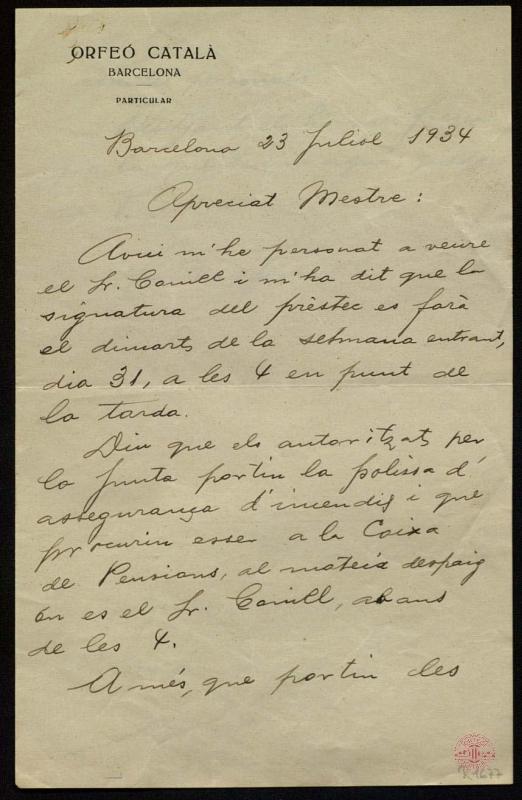 ORFEÓ CATALÀ
BARCELONA
PARTICULAR
Barcelona 23 Juliol 1934
Apreciat Mestre:
Avui m'he personat a veure
el Sr. Conill i m'ha dit que la
signatura del prèstec es farà
el dimarts de la setmana entrant,
dia 31, a les 4 en punt de
la tarda.
Diu que els autoritzats per
la Junta portin la pòlissa d'
assegurança d'incendis i que
procurin esser a la Caixa
de Pensions, al mateix despaig
on es el Sr. Conill, abans
de les 4.
A més, que portin les